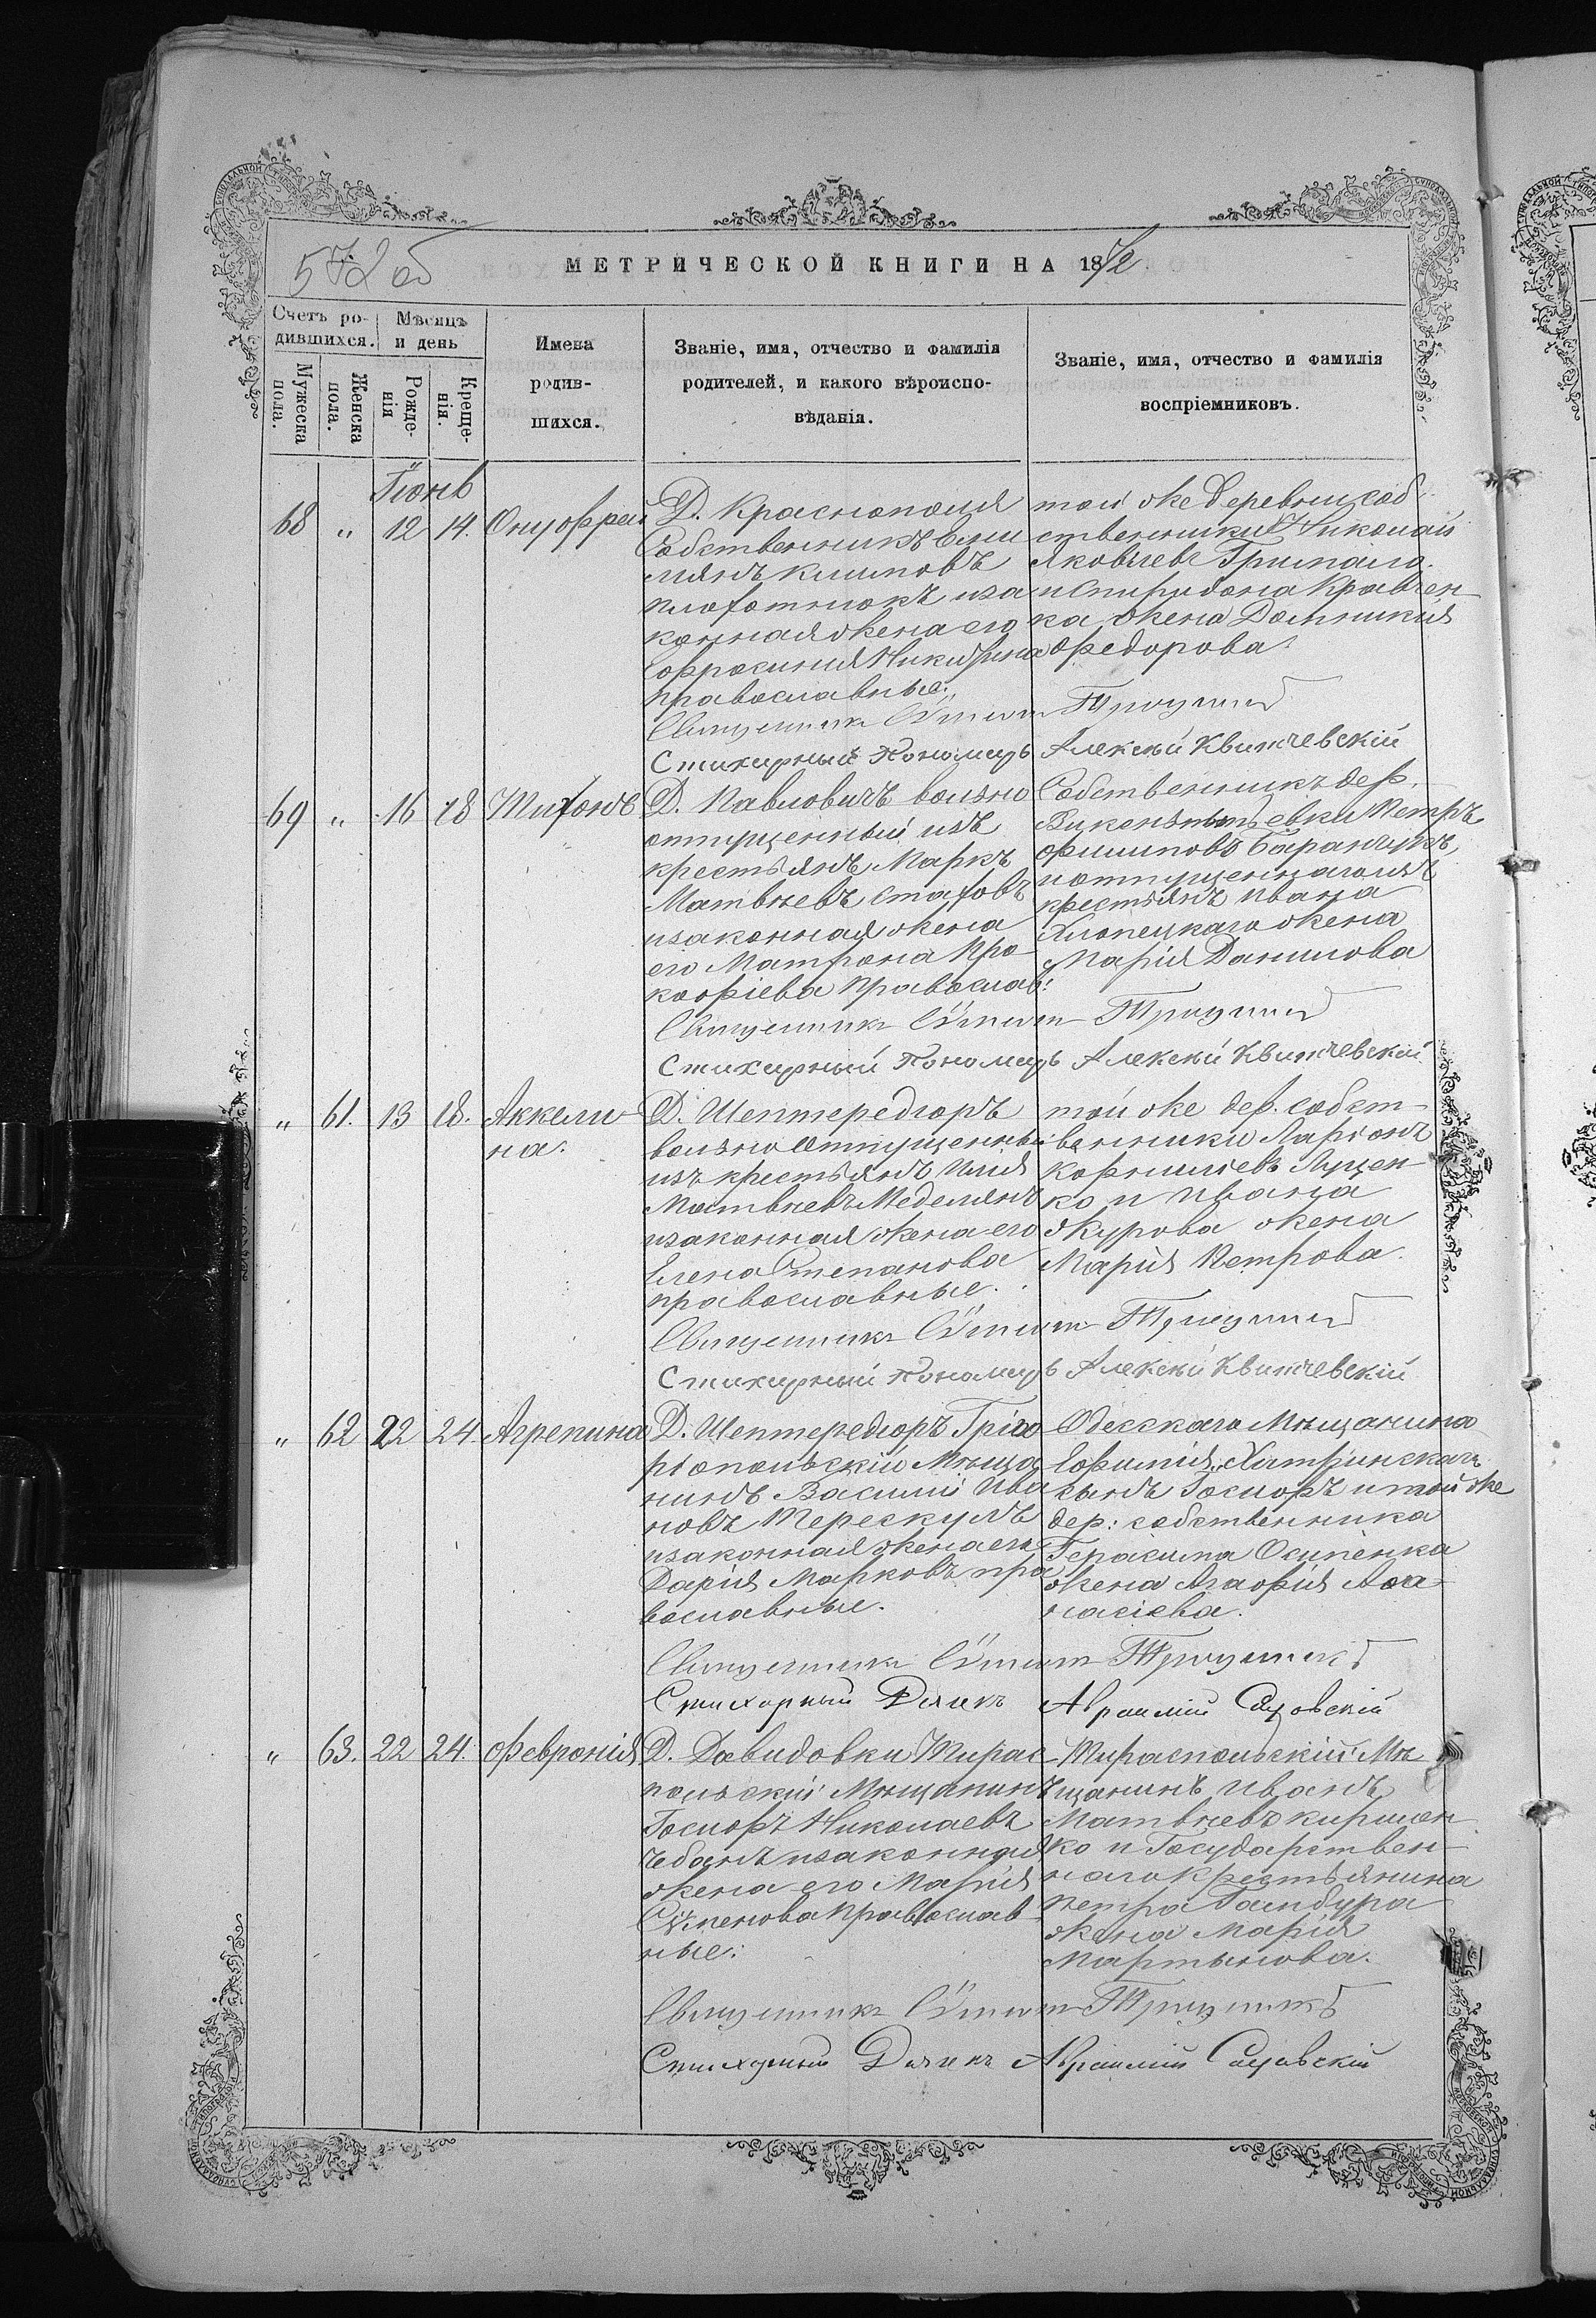 572 об
МЕТРИЧЕСКОЙ КНИГИ НА 1872
Счетъ ро-
дившихся.
Мужеска
пола.
Женска
пола.
Мѣсяцъ
и день
Рожде-
нія
Креще-
нія.
Имена
родив-
шихся.
Званіе, имя, отчество и фамилія
родителей, и какого вѣроиспо-
вѣданія.
Званіе, имя, отчество и фамилія
воспріемниковъ.
Іюнь
68 " 12 14. Онуофрей
Д. Краснополя
Собственникъ Еми
лианъ Климовъ
иза
конная жена его
Ефросинія Никитина
православные.
той же деревни соб
ственники Николай
Яковлевъ
и Спиридона Кравчен
ка жена Домникія
Федорова.
Священникъ
Стихарный Пономарь Алексѣй Квитчевскій
69 " 16 18 Тихонъ
Д. Павловичъ вольно
отпущенный изъ
крестьянъ Маркъ
Матвѣевъ
изаконная жена
его Матрона Про
кофіева Православ:
Собственникъ дер.
Викентьевки Петръ
Филиповъ Баранчукъ,
и отпущеннаго изъ
крестьянъ Ивана
Хлопецкаго жена
Марія Данилова
Священникъ
Стихарный Пономарь Алексѣй Квитчевскій
" 61. 13 18. Аккели-
на.
Д. Шептередоръ
вольно отпущенный
изъ крестьянъ Илія
Матвѣевъ Меделянъ
изаконная жена его
Елена Степанова
православные.
той же дер. собст-
венники Ларіонъ
Корниліевъ Луцен-
ко и Ивана
Жкурова жена
Марія Петрова.
Священникъ
Стихарный Пономарь Алексѣй Квитчевскій
" 62 22 24. Агрепина
Д. Шептередоръ Григо
ріопольскій Мѣща
нинъ Василій Ива
новъ Терескулъ
изаконная жена его
Дарія Марковъ пра
вославные.
Одесскаго Мѣщанина
сынъ Госиоръ и той же
дер: собственника
Герасима Осипенка
жена Агафія Афа-
насіева.
Священникъ
Стихарный Дьякъ
" 63. 22 24. Февронія
Д. Давидовки Тирас-
польскій Мѣщанинъ
Госиоръ Николаевъ
Чебанъ изаконная
жена его Марія
Православ-
ные:
Тираспольскій Мѣ
щанинъ Иванъ
Матвѣевъ Кирилен-
ко и Государствен-
наго крестьянина
Петра Гамбура
жена Марія
Мартынова.
Священникъ
Стихарный Дьякъ